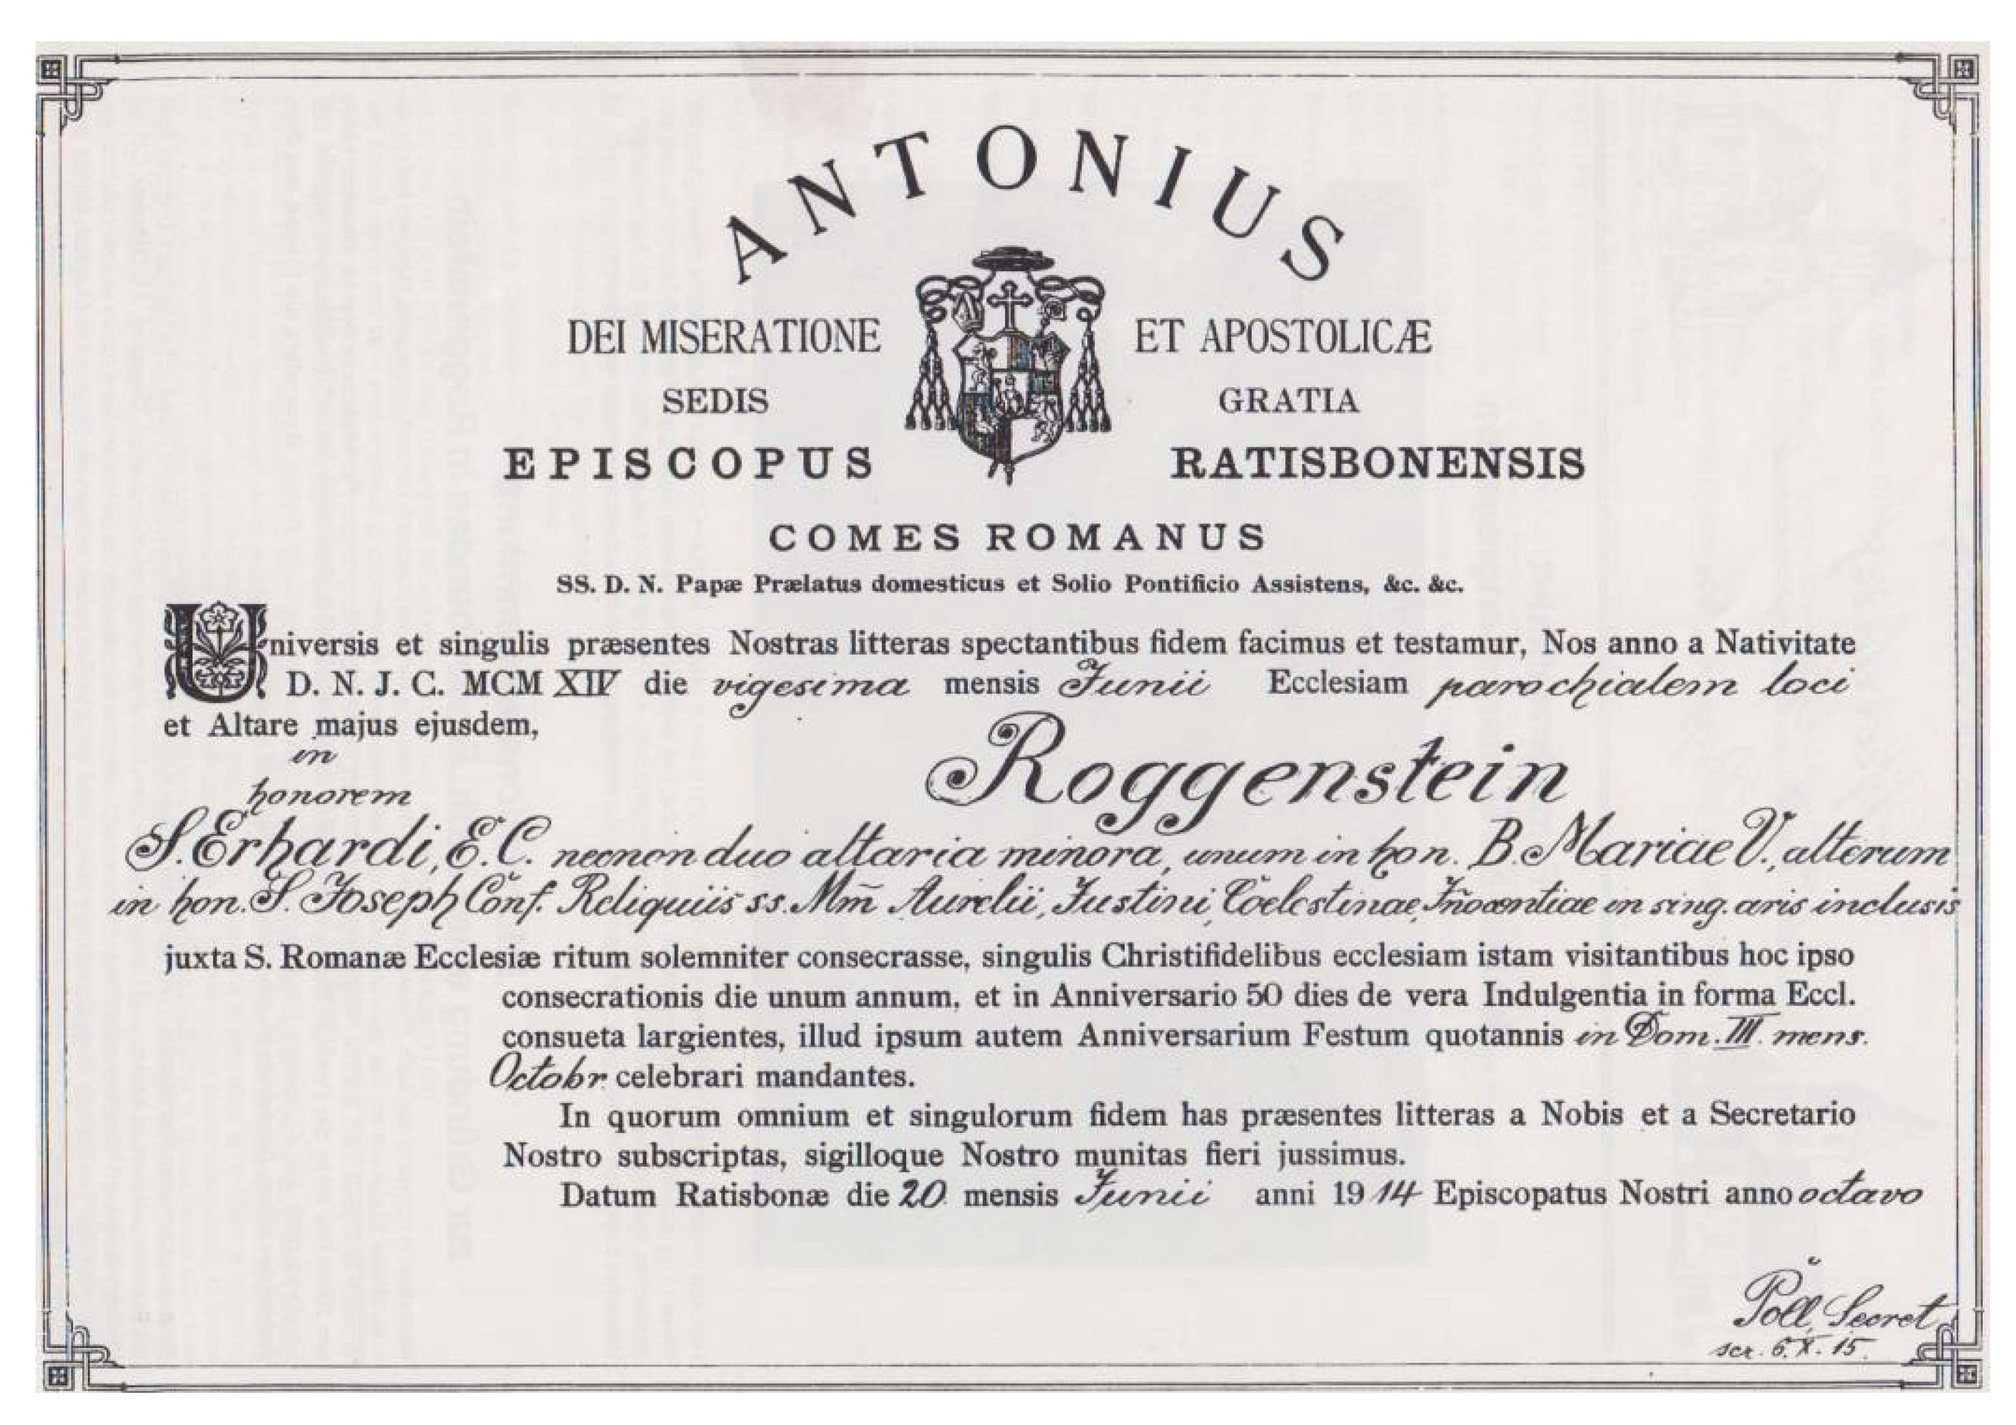 ANTONIUS
DEI MISERATIONE ET APOSTOLICÆ
SEDIS GRATIA
EPISCOPUS RATISBONENSIS
COMES ROMANUS
SS. D. N. Papæ Prælatus domesticus et Solio Pontificio Assistens, &c. &c.
Universis et singulis præsentes Nostras litteras spectantibus fidem facimus et testamur, Nos anno a Nativitate
D. N. J. C. MCM XIV die vigesima mensis Junii Ecclesiam parochialem loci
et Altare majus ejusdem,
in
Roggenstein
honorem
S. Erhardi, E. C. necnon duo altaria minora, unum in hon. B. Mariae V., alterum
in hon. S. Joseph Conf. Reliquiis ss. Mm̄ Aurelii, Justini, Coelestinae, Innocentiae in sing. aris inclusis
juxta S. Romanæ Ecclesiæ ritum solemniter consecrasse, singulis Christifidelibus ecclesiam istam visitantibus hoc ipso
consecrationis die unum annum, et in Anniversario 50 dies de vera Indulgentia in forma Eccl.
consueta largientes, illud ipsum autem Anniversarium Festum quotannis in Dom. III. mens.
Octobr. celebrari mandantes.
In quorum omnium et singulorum fidem has præsentes litteras a Nobis et a Secretario
Nostro subscriptas, sigilloque Nostro munitas fieri jussimus.
Datum Ratisbonæ die 20. mensis Junii anni 1914 Episcopatus Nostri anno octavo
Poll, Secret.
scr. 6. X. 15.